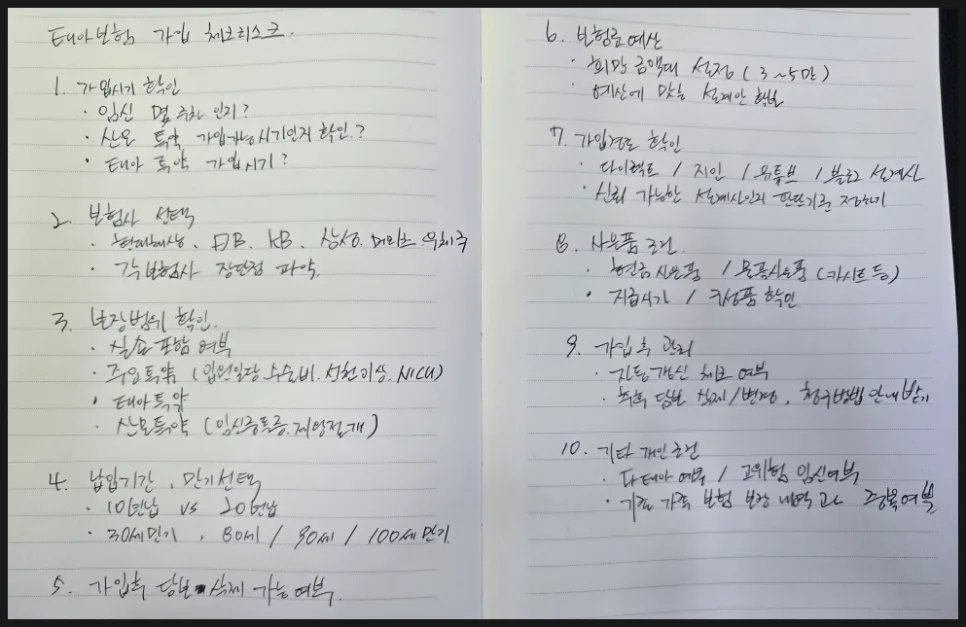 태아보험 가입 체크리스크.
1. 가입시기 확인
· 임신 몇 주차 인지?
· 산모 특약 가입가능시기인지 확인.?
· 태아 특약 가입시기?
2. 보험사 선택
· 현대해상, DB, KB, 삼성, 메리츠 우체국
· 각 보험사 장단점 파악.
3. 보장범위 확인.
· 실손 포함 여부
· 주요특약 (입원일당, 수술비, 선천이상, NICU)
· 태아특약
· 산모특약 (임신중독증, 제왕절개)
4. 납입기간, 만기선택
· 10년납 vs 20년납
· 30세만기, 80세 / 90세 / 100세 만기
5. 가입후 담보 삭제 가능 여부.
6. 보험료예산
· 희망 금액대 설정 (3~5만)
· 예산에 맞는 설계안 확보
7. 가입경로 확인
· 다이렉트 / 지인 / 유튜브 / 블로그 설계사
· 신뢰 가능한 설계사인지 판단기준 정하기
8. 사은품 조건.
· 현금사은품 / 물품사은품 (카시트 등)
· 지급시기 / 구성품 확인
9. 가입 후 관리
· 자동갱신 체크 여부
· 출생후 담보 삭제/변경, 청구방법 안내받기
10. 기타 개인조건
· 다태아 여부 / 고위험 임신여부
· 기존 가족 보험 보장 내역과 중복여부